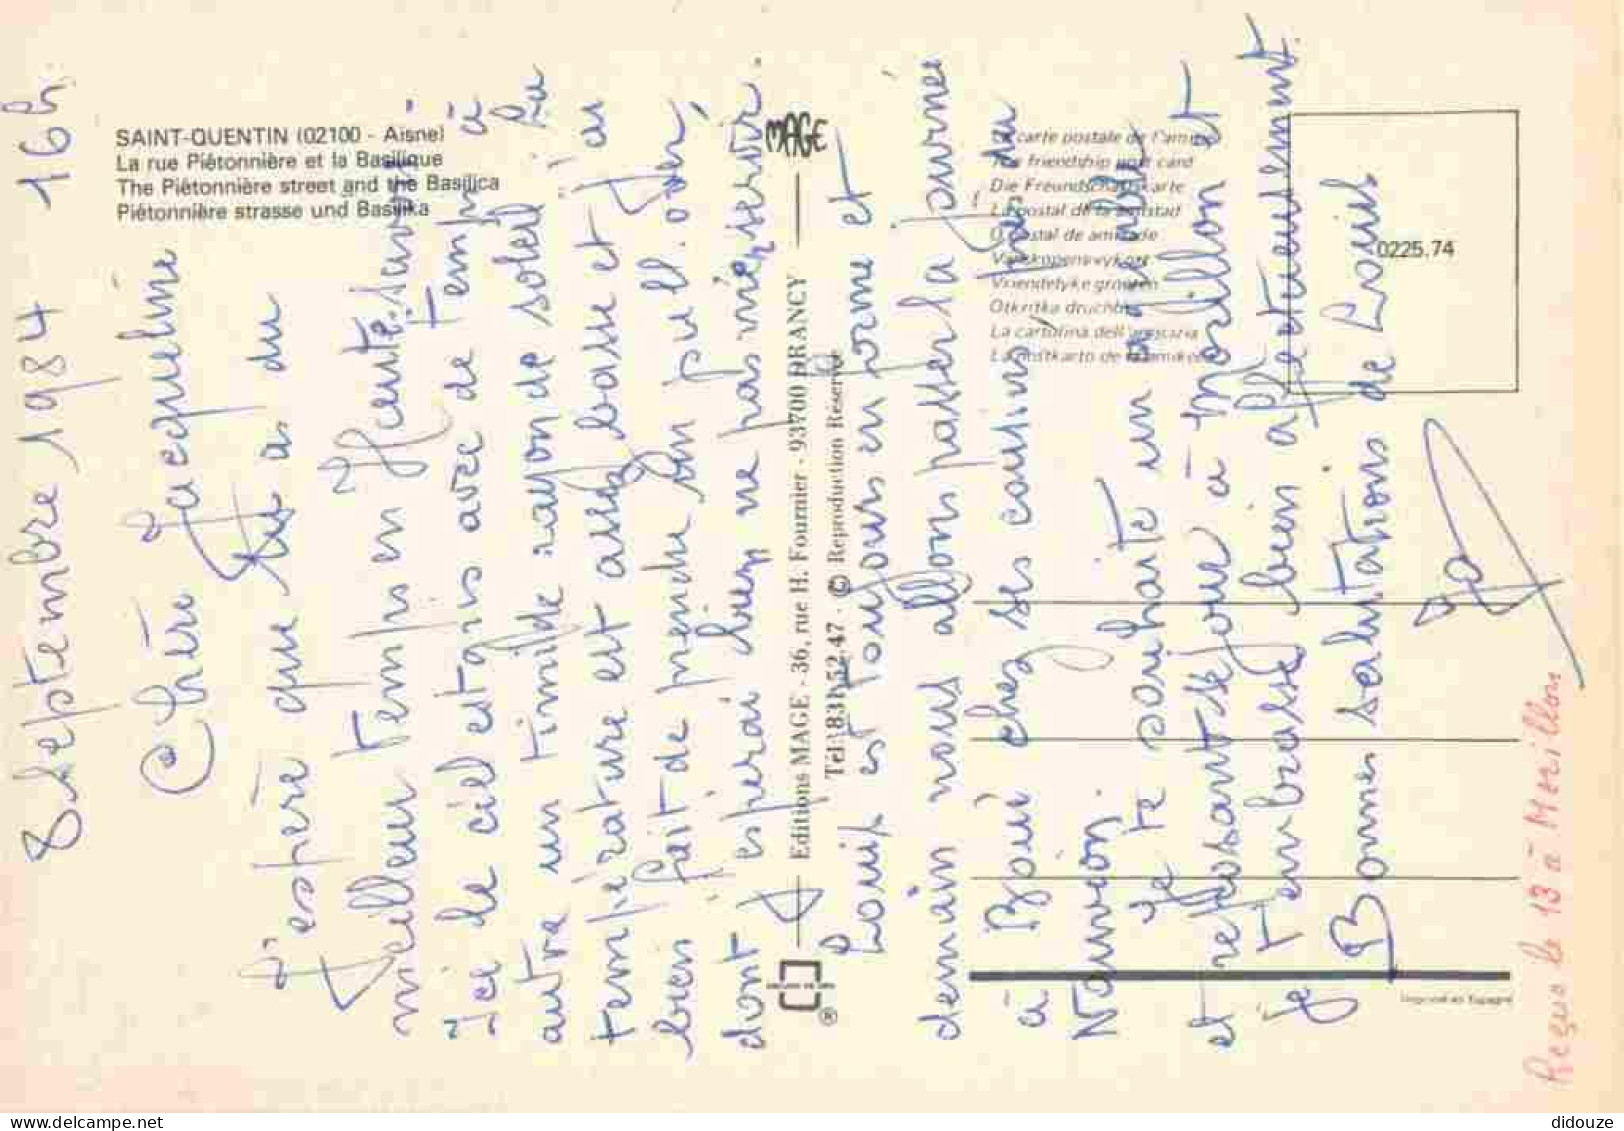 SAINT-QUENTIN (02100 - Aisne)
La rue Piétonnière et la Basilique
The Piétonnière street and the Basilica
Piétonnière strasse und Basilika
8 septembre 1984 16h
Chère Jacqueline
J'espère que tu as du
meilleur temps en Haute-Savoie,
Ici le ciel est gris avec de temp à
autre un timide rayon de soleil. La
température est assez basse et l'on
bien fait de prendre son pull. over,
dont j'esperai bien ne pas m'en servir.
Louis est toujours en forme et
demain nous allon passer la journée
à Boué chez ses cousins, près du
Nouvion.
Je te souhaite un agréable
et reposant séjour à Morillon et
je t'embrasse bien affectueusement.
Bonnes salutations de Louis
Editions MAGE - 36, rue H. Fournier - 93700 DRANCY
Tél: 831.52.47 - © Reproduction Réservée
MAGE
®
La carte postale de l'amitié
The friendship post card
Die Freundschaftskarte
La postal de la amistad
O postal de amizade
Vanskopensvykort
Vriendelyke groeten
Otkritka druchbi
La cartolina dell'amicizia
La postkarto de la amikeco
0225.74
Imprimé en Espagne
Reçue le 13 à Morillon
didouze